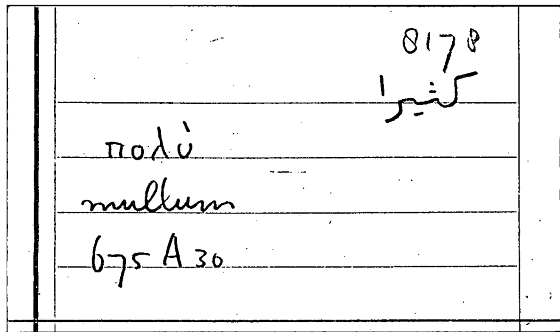 8178
كثيرا
πολύ
multum
675 A 30